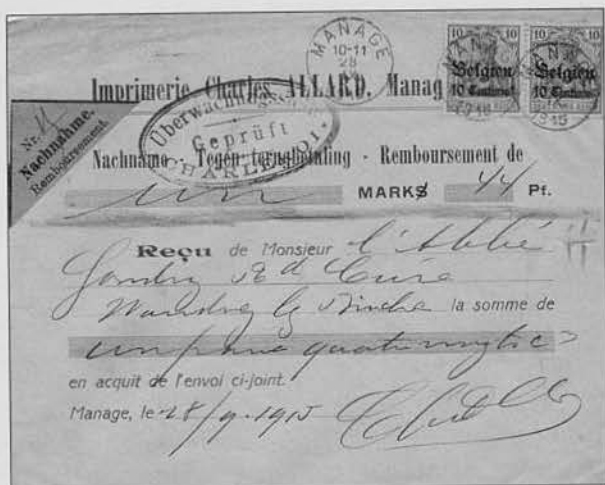 MANAGE
10-11
28
10 10 10 10
Belgien Belgien
10 Centimes 10 Centimes
Imprimerie Charles ALLARD. Manag
Überwachungsstelle
Geprüft
CHARLEROI.
Nr. 11
Nachnahme.
Remboursement
Nachname - Tegen terugbetaling - Remboursement de
un MARKS 44 Pf.
Reçu de Monsieur l'Abbé
Curé
la somme de
un franc quatre vingt c
en acquit de l'envoi ci-joint.
Manage, le 28/9-1915